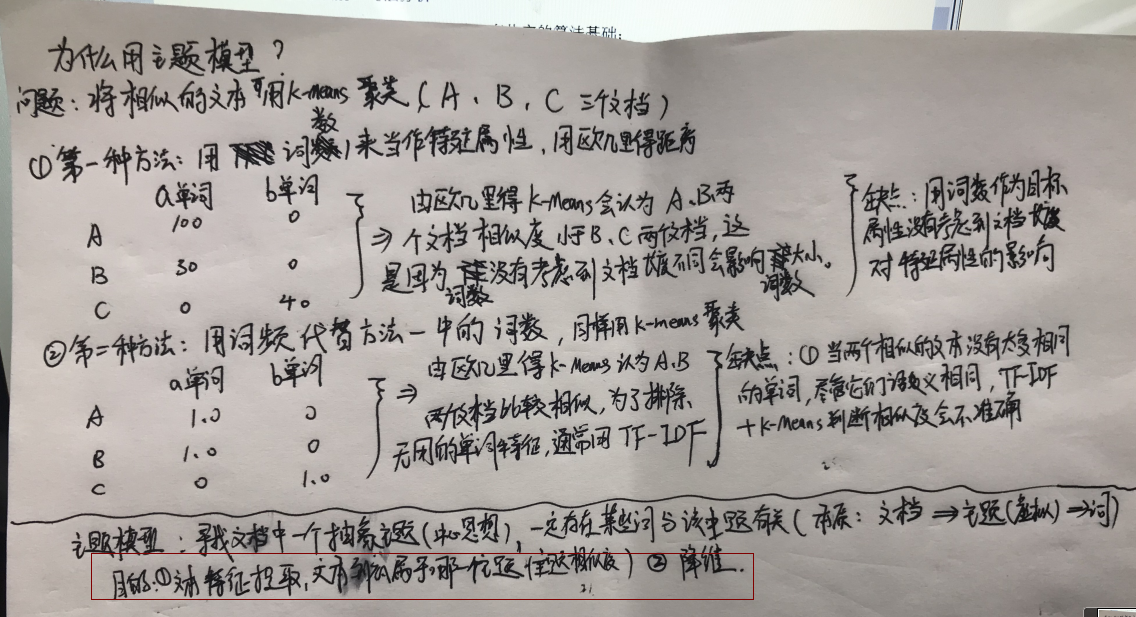 为什么用主题模型?
问题:将相似的文本可用K-means 聚类(A、B、C 三个文档)
①第一种方法:用词数来当作特征属性,用欧几里得距离
a单词 b单词
A 100 0
B 30 0
C 0 40
由欧几里得K-Means会认为 A、B两
⇒ 个文档相似度小于B、C两个文档,这
是因为没有考虑到文档长度不同会影响大小。
词数 词数
缺点:用词数作为目标
属性没有考虑到文档长度
对特征属性的影响
②第二种方法:用词频代替方法一中的词数,同样用K-means聚类
a单词 b单词
A 1.0 0
B 1.0 0
C 0 1.0
⇒ 由欧几里得K-Means 认为A、B
两个文档比较相似,为了排除
无用的单词特征,通常用 TF-IDF
缺点:①当两个相似的文本没有太多相同
的单词,尽管它们语义相同,TF-IDF
+K-Means判断相似度会不准确
主题模型:寻找文档中一个抽象主题(中心思想),一定存在某些词与该主题有关(本质:文档⇒主题(虚拟)⇒词)
目的:①文本特征提取,文本到底属于哪一个主题 相似度)②降维.